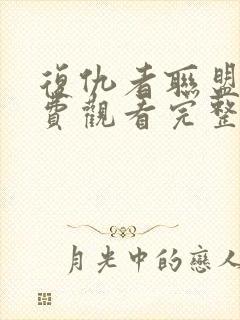 復仇者聯盟
費觀看完整
月光中的戀人